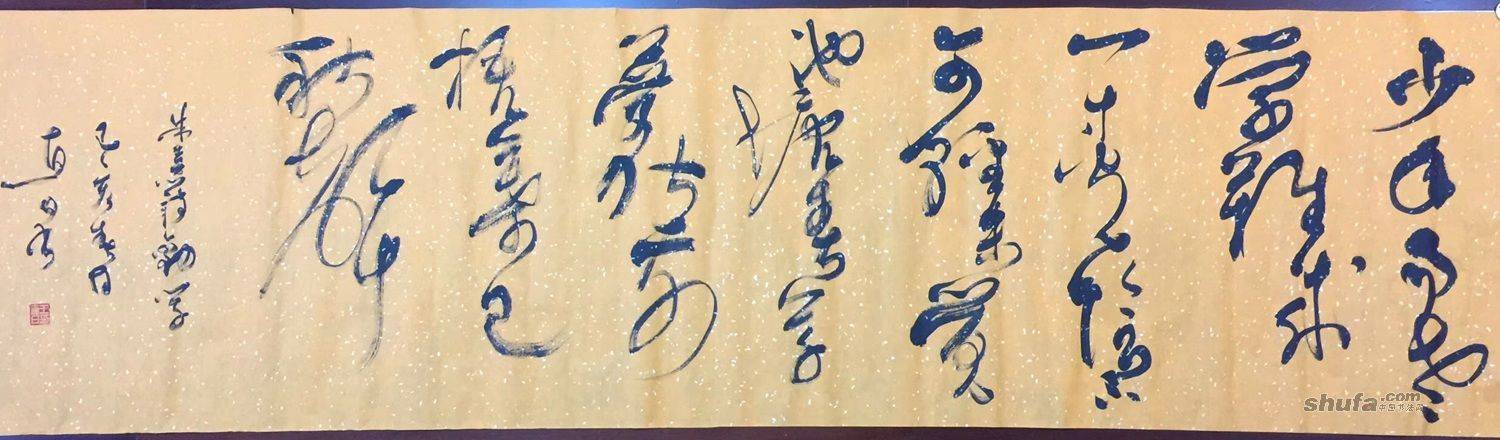 少年易老
學難成
一寸光陰不
可輕未覺
池塘春草
夢階前
梧葉已
秋聲
朱熹詩勸學
己亥春日
shufa.com
中国书法网